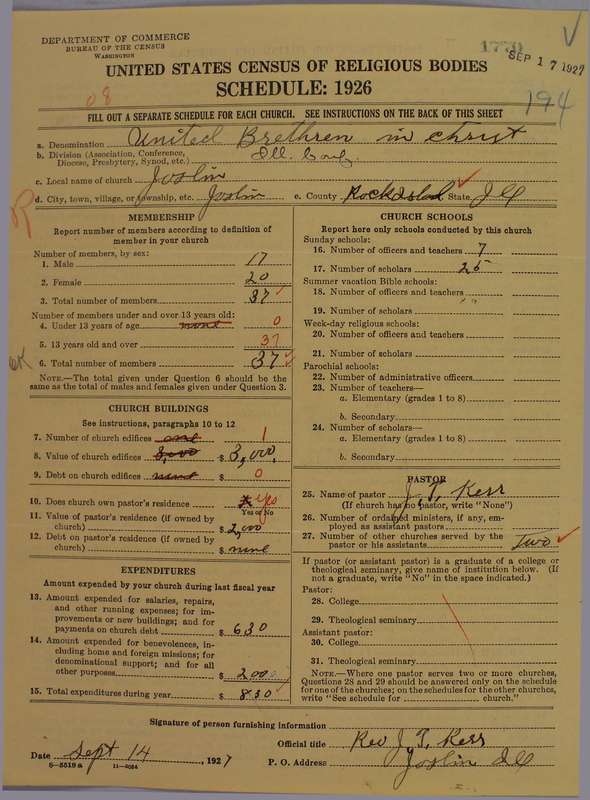 DEPARTMENT OF COMMERCE
BUREAU OF THE CENSUS
WASHINGTON
1770
SEP 17 1927
UNITED STATES CENSUS OF RELIGIOUS BODIES
SCHEDULE: 1926
08
194
FILL OUT A SEPARATE SCHEDULE FOR EACH CHURCH. SEE INSTRUCTIONS ON THE BACK OF THIS SHEET
a. Denomination United Brethren in christ
b. Division (Association, Conference, Diocese, Presbytery, Synod, etc.) Ill. Conf.
c. Local name of church Joslin
d. City, town, village, or township, etc. Joslin e. County Rock Island State Ill
MEMBERSHIP
Report number of members according to definition of
member in your church
Number of members, by sex:
1. Male 17
2. Female 20
3. Total number of members 37
Number of members under and over 13 years old:
4. Under 13 years of age none 0
5. 13 years old and over 37
6. Total number of members 37
OK
NOTE.—The total given under Question 6 should be the
same as the total of males and females given under Question 3.
CHURCH BUILDINGS
See instructions, paragraphs 10 to 12
7. Number of church edifices one 1
8. Value of church edifices 3,000 $ 3,000,
9. Debt on church edifices none $ 0
10. Does church own pastor's residence yes
Yes or No
11. Value of pastor's residence (if owned by
church) $ 2,000
12. Debt on pastor's residence (if owned by
church) $ none
EXPENDITURES
Amount expended by your church during last fiscal year
13. Amount expended for salaries, repairs,
and other running expenses; for im-
provements or new buildings; and for
payments on church debt $ 630
14. Amount expended for benevolences, in-
cluding home and foreign missions; for
denominational support; and for all
other purposes $ 200
15. Total expenditures during year $ 830
CHURCH SCHOOLS
Report here only schools conducted by this church
Sunday schools:
16. Number of officers and teachers 7
17. Number of scholars 25
Summer vacation Bible schools:
18. Number of officers and teachers
19. Number of scholars
Week-day religious schools:
20. Number of officers and teachers
21. Number of scholars
Parochial schools:
22. Number of administrative officers
23. Number of teachers—
a. Elementary (grades 1 to 8)
b. Secondary
24. Number of scholars—
a. Elementary (grades 1 to 8)
b. Secondary
PASTOR
25. Name of pastor J. T. Kerr
(If church has no pastor, write "None")
26. Number of ordained ministers, if any, em-
ployed as assistant pastors
27. Number of other churches served by the
pastor or his assistants Two
If pastor (or assistant pastor) is a graduate of a college or
theological seminary, give name of institution below. (If
not a graduate, write "No" in the space indicated.)
Pastor:
28. College
29. Theological seminary
Assistant pastor:
30. College
31. Theological seminary
NOTE.—Where one pastor serves two or more churches,
Questions 28 and 29 should be answered only on the schedule
for one of the churches; on the schedules for the other churches,
write "See schedule for church."
Signature of person furnishing information
Official title Rev J. T. Kerr
Date Sept 14, 1927
P. O. Address Joslin Ill
8—5518 a 11—9054